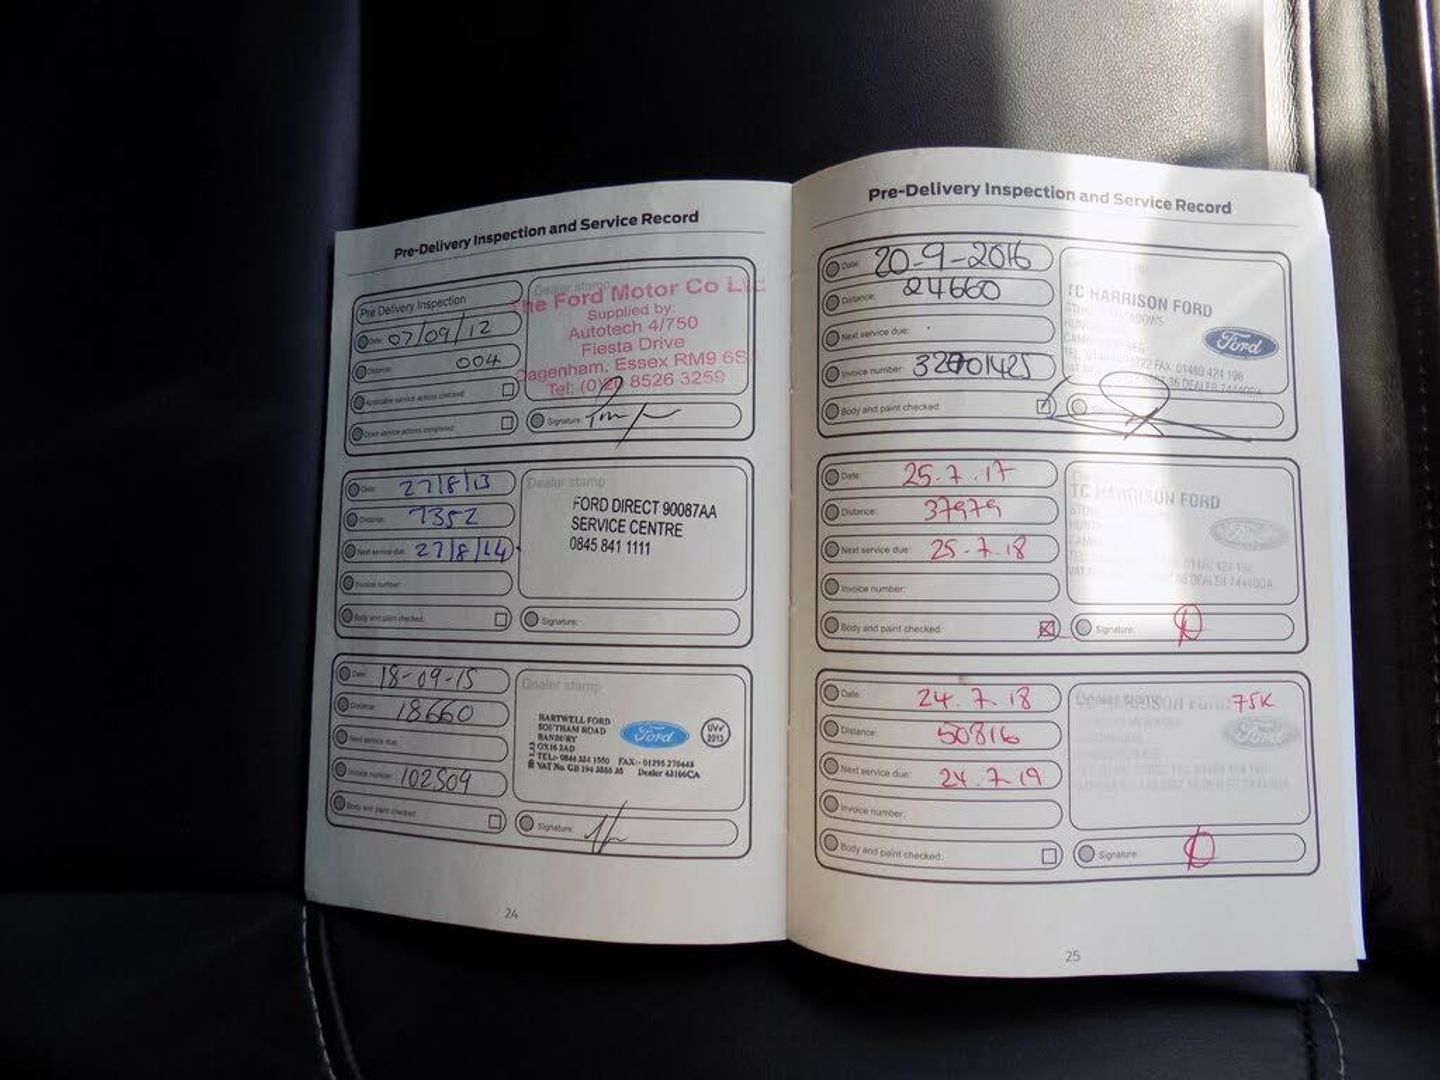 Pre-Delivery Inspection and Service Record
Pre Delivery Inspection
Date: 07/09/12
Distance: 004
Applicable service actions checked:
Open service actions completed:
Dealer stamp
The Ford Motor Co Ltd
Supplied by:
Autotech 4/750
Fiesta Drive
Dagenham, Essex RM9 6S
Tel: (0)20 8526 3259
Signature:
Date: 27/8/13
Distance: 7352
Next service due: 27/8/14
Invoice number:
Body and paint checked:
Dealer stamp
FORD DIRECT 90087AA
SERVICE CENTRE
0845 841 1111
Signature:
Date: 18-09-15
Distance: 18660
Next service due:
Invoice number: 102509
Body and paint checked:
Dealer stamp
HARTWELL FORD
SOUTHAM ROAD
BANBURY
OX16 2AD
TEL:- 0844 324 1550 FAX:- 01295 270448
VAT No. GB 194 3885 36 Dealer 43166CA
Ford
UV√
2013
Signature:
24
Pre-Delivery Inspection and Service Record
Date: 20-9-2016
Distance: 24660
Next service due:
Invoice number: 32701425
Body and paint checked:
TC HARRISON FORD
FAX 01480 424 196
DEALER 74440DA
Ford
Date: 25.7.17
Distance: 37979
Next service due: 25.7.18
Invoice number:
Body and paint checked:
TC HARRISON FORD
DEALER 74440DA
Signature:
Date: 24.7.18
Distance: 50816
Next service due: 24.7.19
Invoice number:
Body and paint checked:
Dealer stamp
75K
Ford
Signature:
25